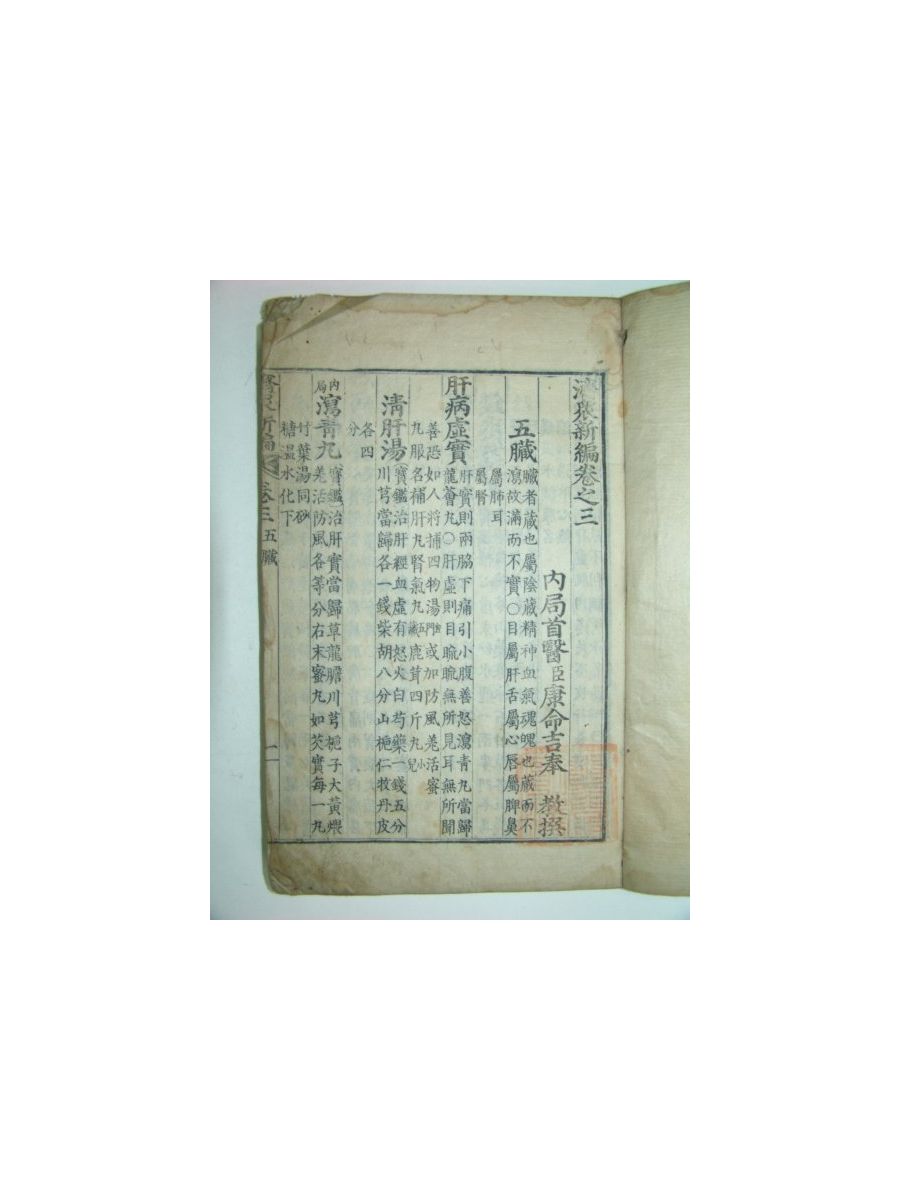 濟衆新編卷之三
內局首醫臣康命吉奉 教撰
五臟
臟者藏也屬陰藏精神血氣魂魄也藏而不
瀉故滿而不實○目屬肝舌屬心唇屬脾鼻
屬肺耳
屬腎
肝病虛實
肝實則兩脇下痛引小腹善怒瀉青丸當歸
龍薈丸○肝虛則目䀮䀮無所見耳無所聞
善恐如人將捕四物湯門或加防風羌活蜜
丸服名補肝丸腎氣丸五臟鹿茸四斤丸小兒
清肝湯
寶鑑治肝經血虛有怒火白芍藥一錢五分
川芎當歸各一錢柴胡八分山梔仁牧丹皮
各四
分
內局
瀉靑丸
寶鑑治肝實當歸草龍膽川芎梔子大黃煨
羌活防風各等分右末蜜丸如芡實每一丸
竹葉湯同砂
糖溫水化下
濟衆新編 卷三 五臟 一